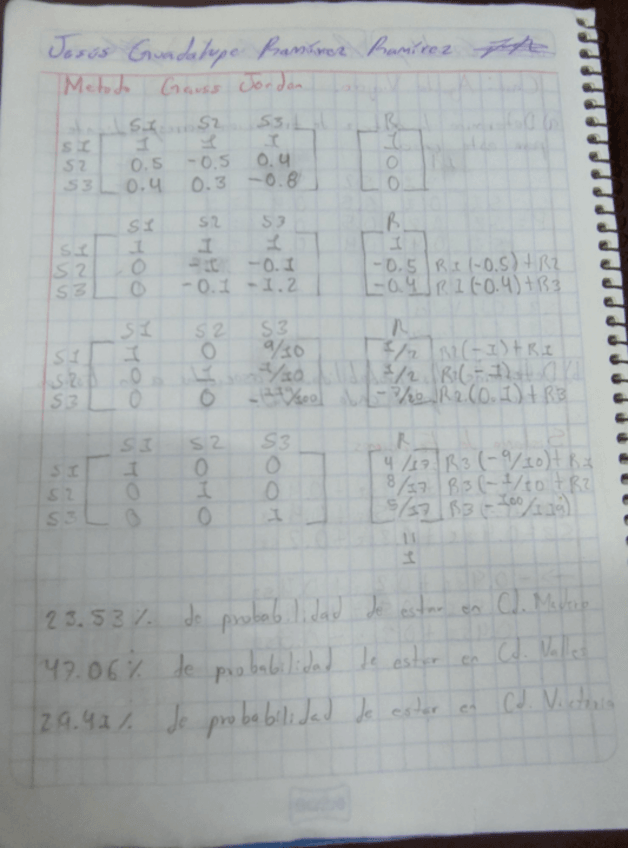 Jesus Guadalupe Ramírez Ramírez
Metodo Gauss Jordan
S1 S2 S3 R
S1 1 1 1 1
S2 0.5 -0.5 0.4 0
S3 0.4 0.3 -0.8 0
S1 S2 S3 R
S1 1 1 1 1
S2 0 -1 -0.1 -0.5 R1(-0.5)+R2
S3 0 -0.1 -1.2 -0.4 R1(-0.4)+R3
S1 S2 S3 R
S1 1 0 9/10 1/2 R2(-1)+R1
S2 0 1 1/10 1/2
S3 0 0 R2(0.1)+R3
S1 S2 S3 R
S1 1 0 0 4/17 R3(-9/10)+R1
S2 0 1 0 8/17 R3(-1/10+R2
S3 0 0 1 5/17
11
1
23.53% de probabilidad de estar en Cd. Madero
47.06% de probabilidad de estar en Cd. Valles
29.41% de probabilidad de estar en Cd. Victoria